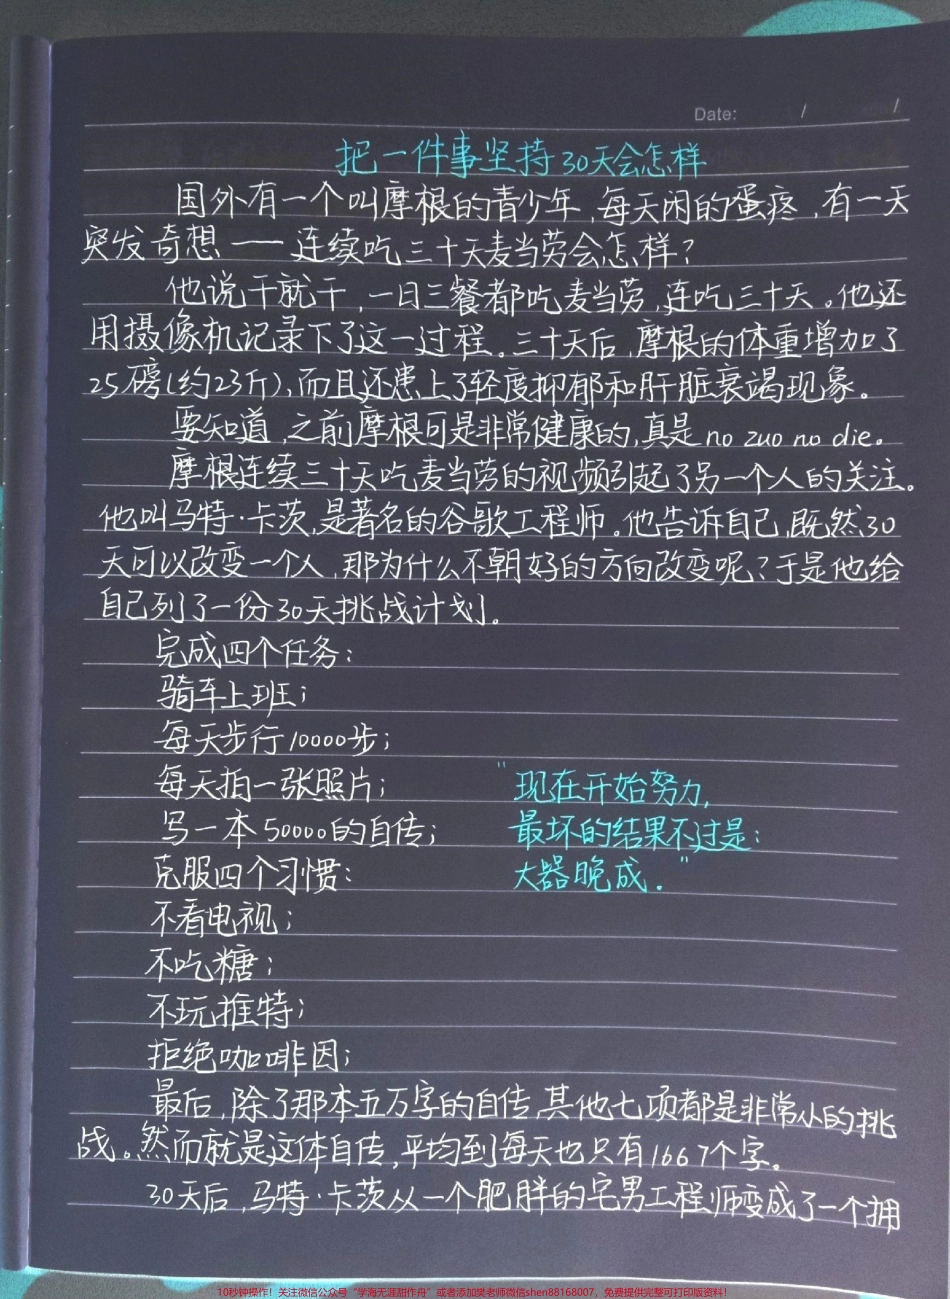 Date: / /
把一件事坚持30天会怎样
国外有一个叫摩根的青少年,每天闲的蛋疼,有一天
突发奇想——连续吃三十天麦当劳会怎样?
他说干就干,一日三餐都吃麦当劳,连吃三十天。他还
用摄像机记录下了这一过程。三十天后,摩根的体重增加了
25磅(约23斤),而且还患上了轻度抑郁和肝脏衰竭现象。
要知道,之前摩根可是非常健康的,真是no zuo no die。
摩根连续三十天吃麦当劳的视频引起了另一个人的关注。
他叫马特·卡茨,是著名的谷歌工程师。他告诉自己,既然30
天可以改变一个人,那为什么不朝好的方向改变呢?于是他给
自己列了一份30天挑战计划。
完成四个任务:
骑车上班;
每天步行10000步;
每天拍一张照片;
"现在开始努力,
写一本50000的自传;
最坏的结果不过是:
克服四个习惯:
大器晚成."
不看电视;
不吃糖;
不玩推特;
拒绝咖啡因;
最后,除了那本五万字的自传,其他七项都是非常小的挑
战。然而就是这体自传,平均到每天也只有1667个字。
30天后,马特·卡茨从一个肥胖的宅男工程师变成了一个拥
10秒钟操作!关注微信公众号“学海无涯甜作舟”或者添加樊老师微信shen88168007,免费提供完整可打印版资料!